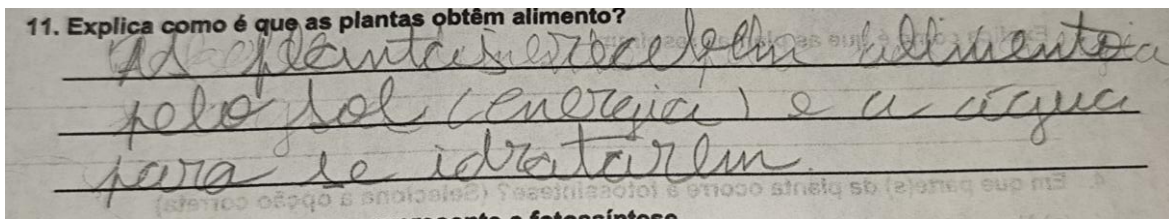 11. Explica como é que as plantas obtêm alimento?
As plantas recebem alimento
pelo sol (energia) e a água
para se idratarem.